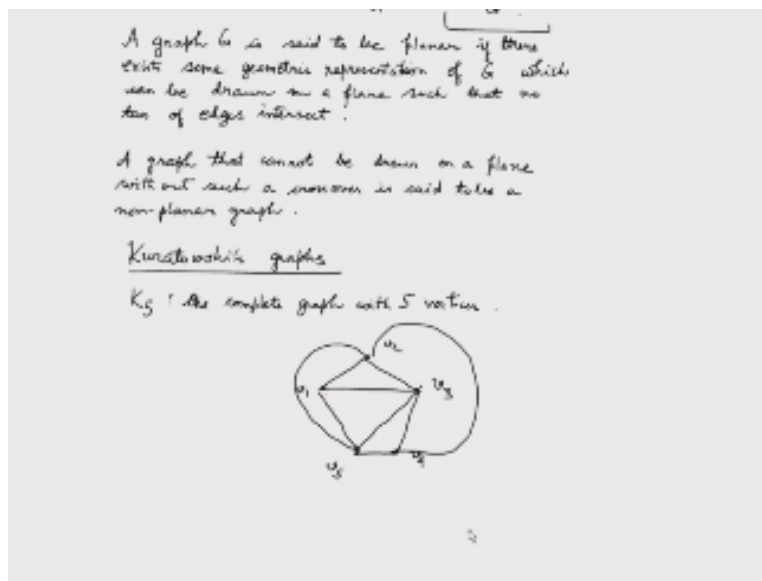 A graph G is said to be planar if there
exists some geometric representation of G which
can be drawn on a plane such that no
two of edges intersect .
A graph that cannot be drawn on a plane
without such a crossover is said to be a
non-planar graph .
Kuratowski's graphs
K5 : the complete graph with 5 vertices .
v2
v1
v3
v5
v4